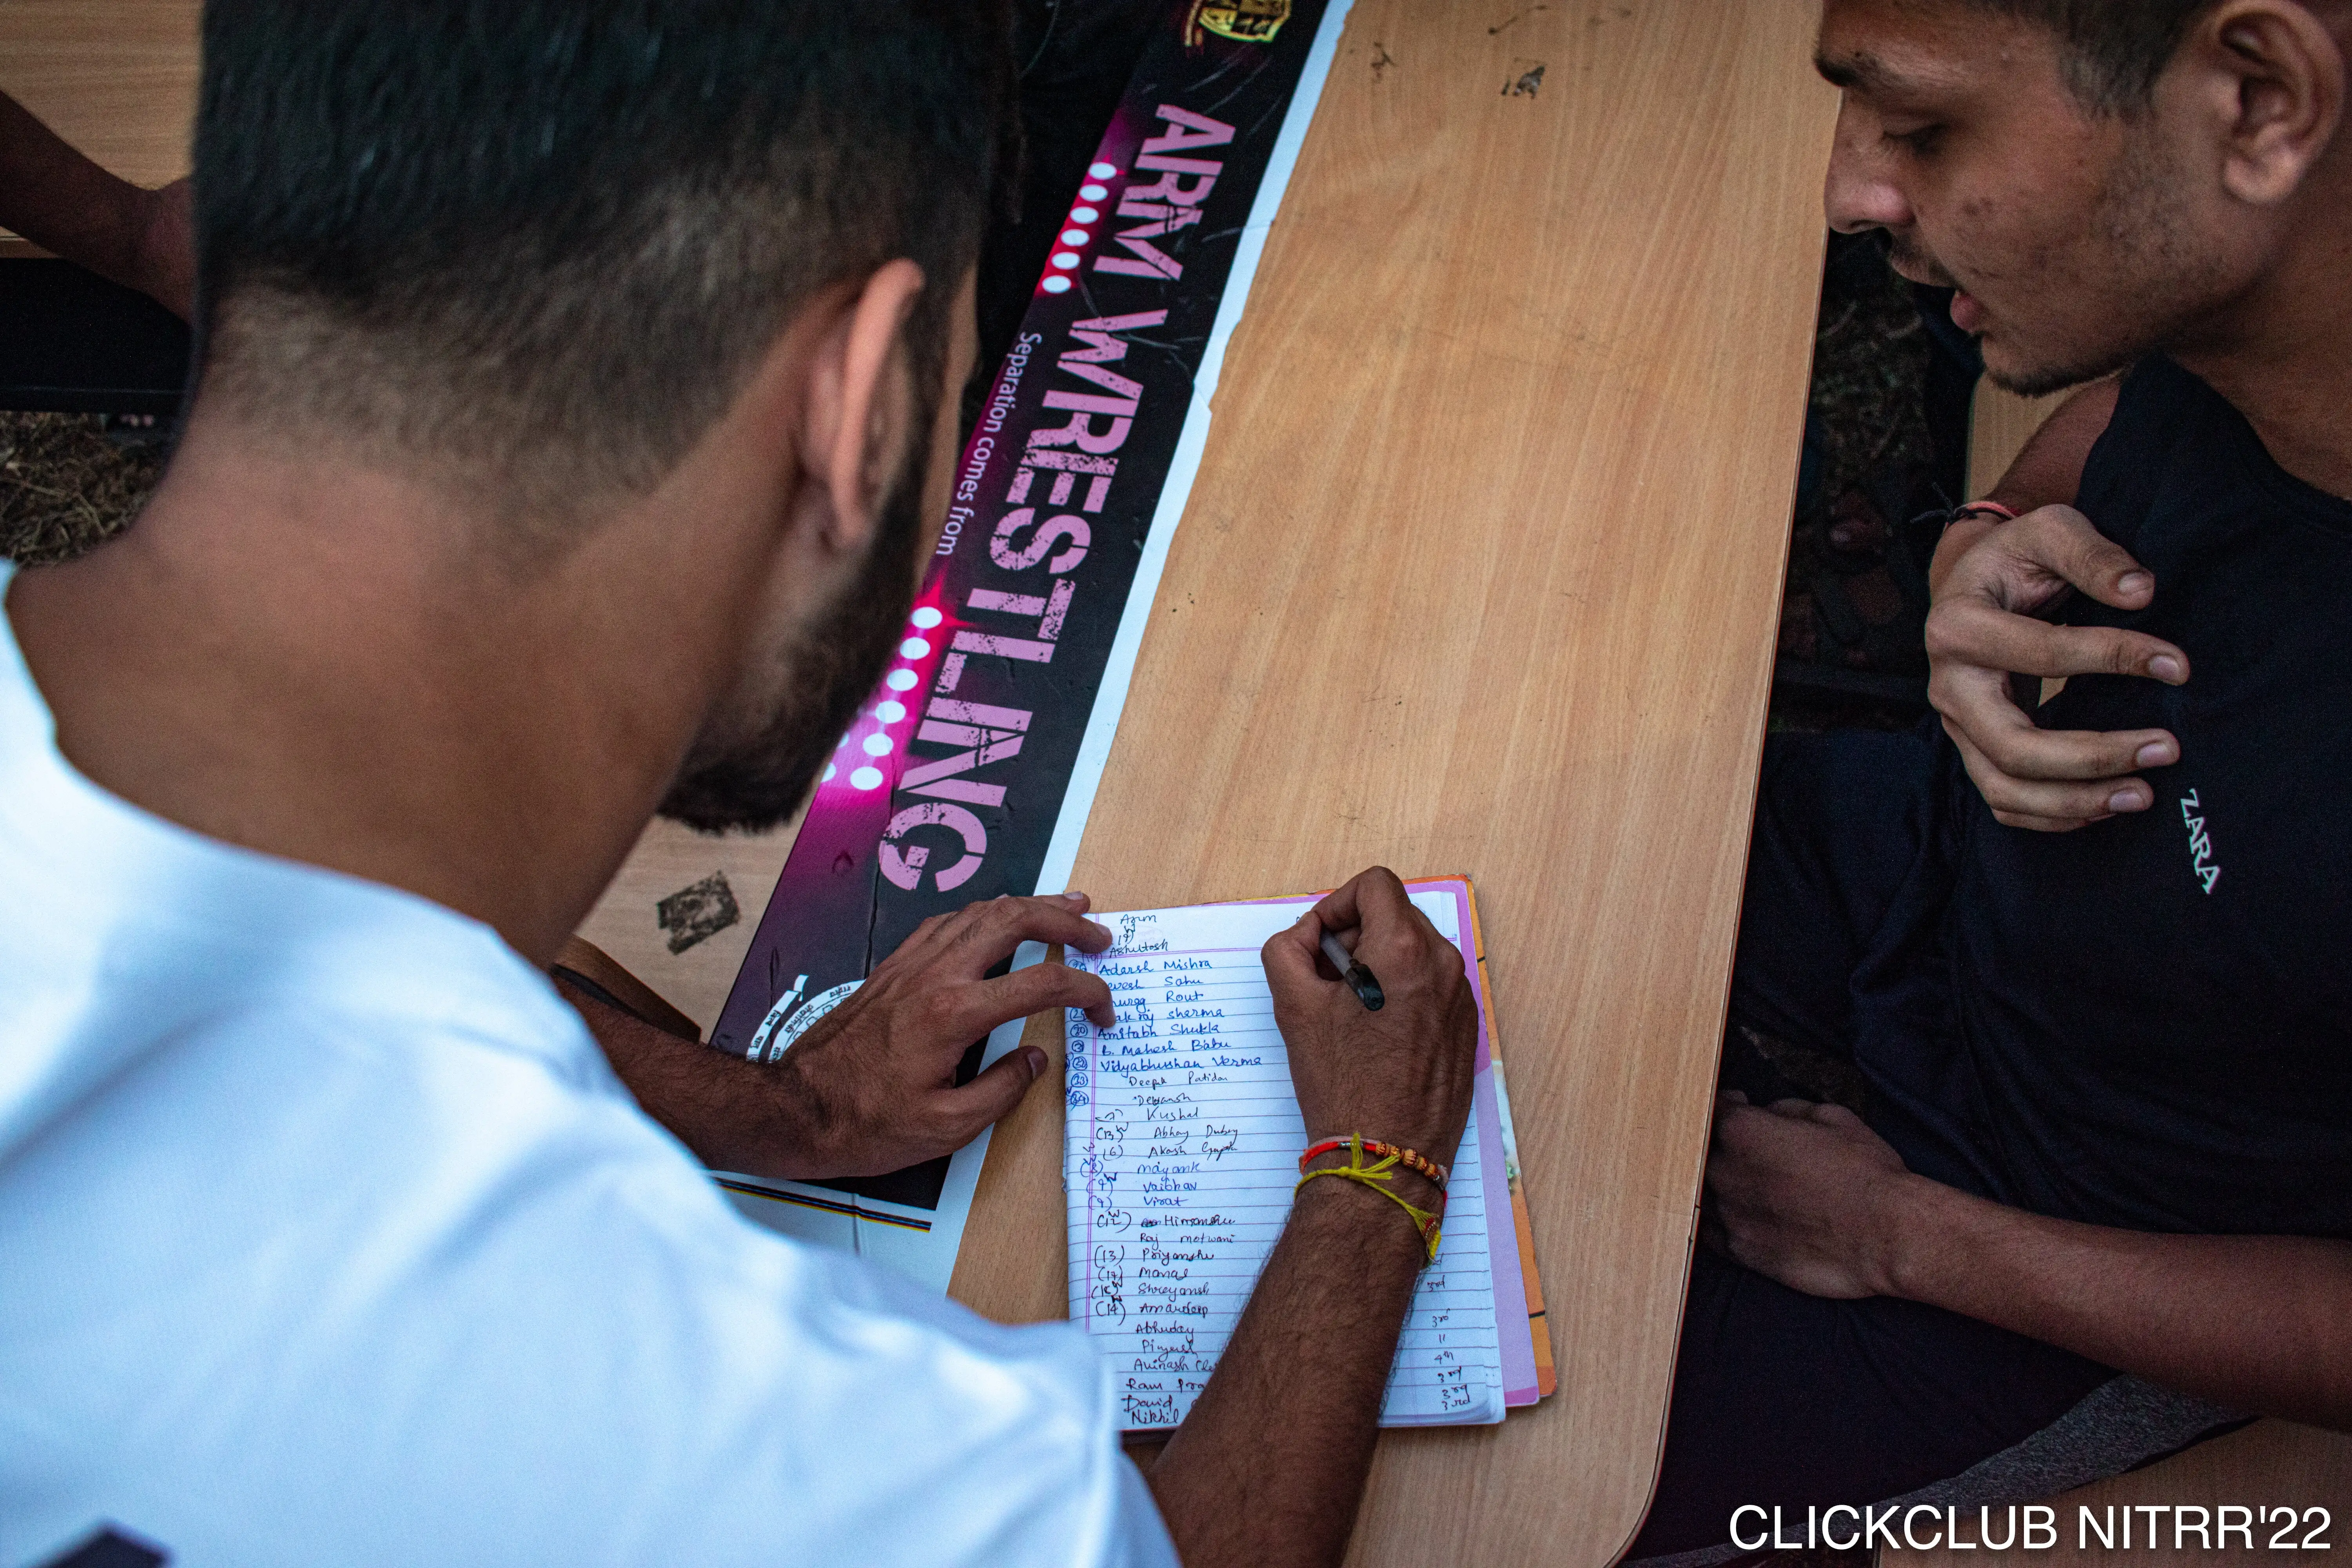 ARM WRESTLING
Separation comes from
ZARA
Azim
Ashutosh
Adarsh Mishra
Sahu
Rout
sherma
(20) Amitabh Shukla
B. Mahesh Babu
(22) Vidyabhushan Verma
(23) Deepak Patidar
(24) Devansh
Kushal
(13) Abhay Dubey
(6) Akash Gupta
Mayank
(9) Vaibhav
(9) Virat
(12) Himanshu
Raj motwani
(13) Priyanshu
(17) Manas
Shreyansh 3rd
(14) Amardeep
Abhuday 3rd
Piyush 11
Avinash 4th
Ram 3rd
David 3rd
Nikhil 3rd
CLICKCLUB NITRR'22